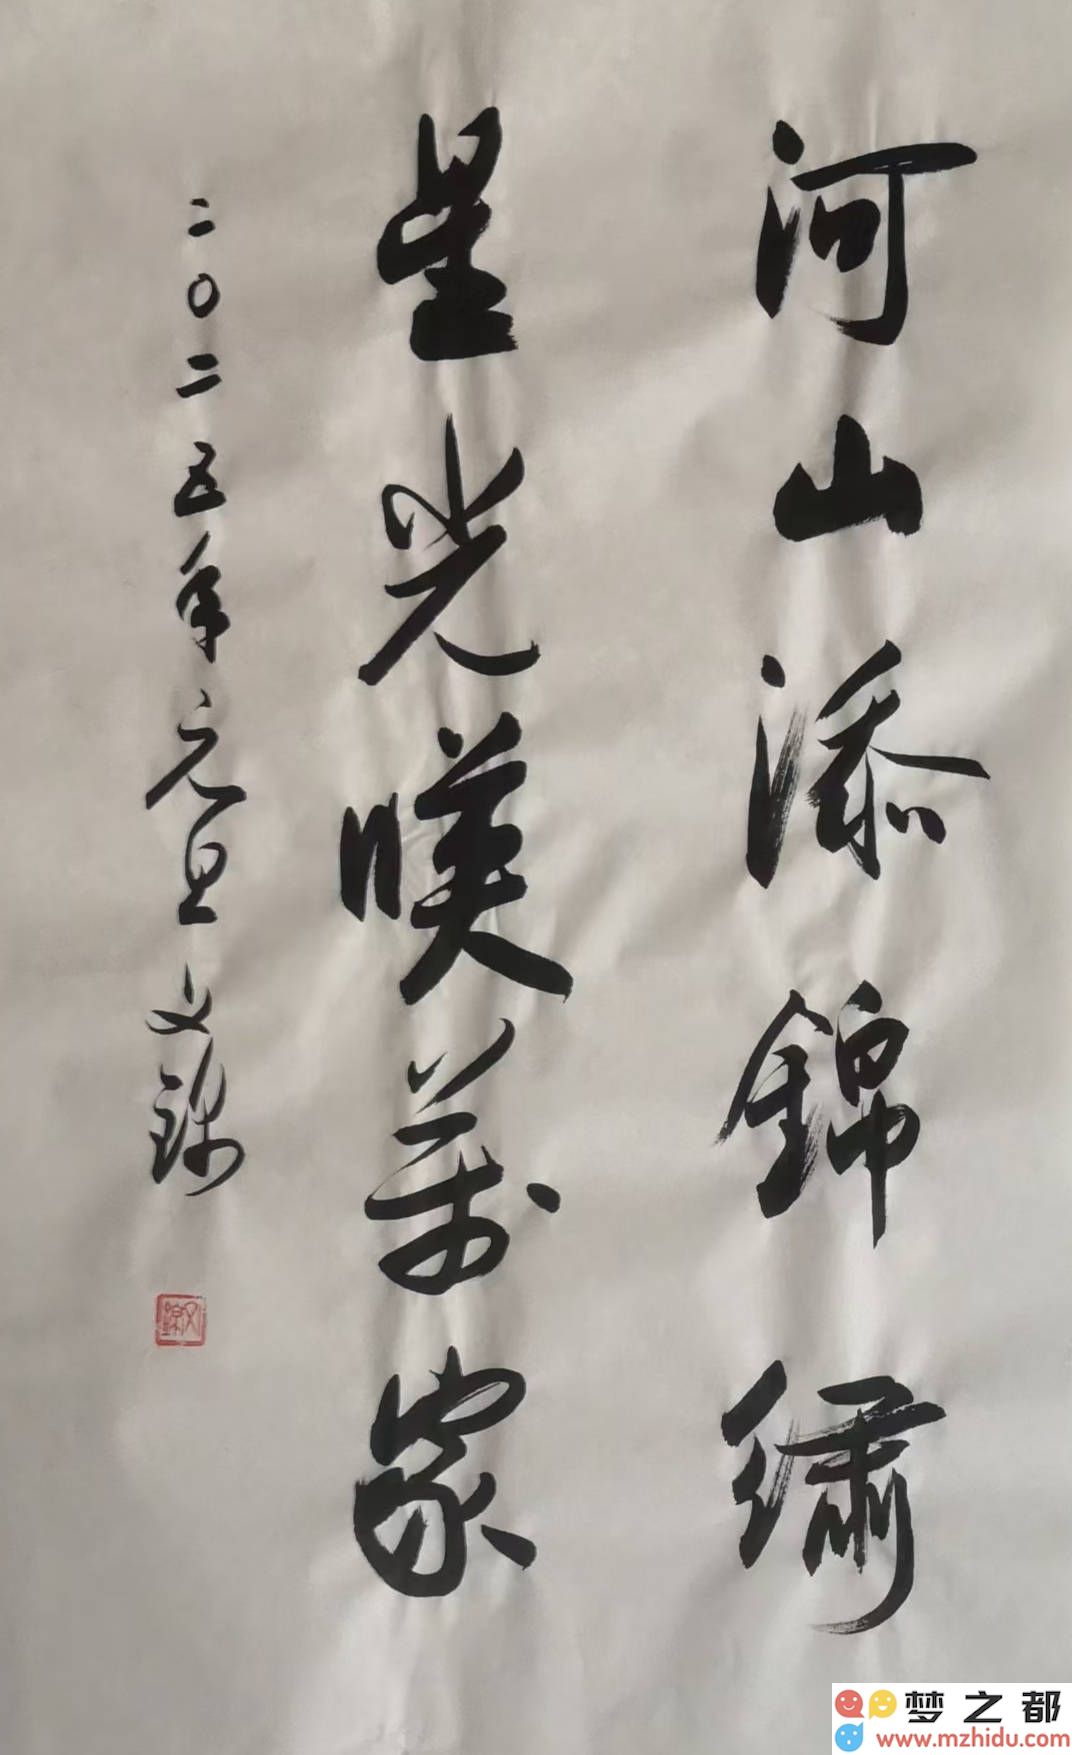 河山添錦繡
星光暎萬家
二〇二五年元旦文錦
文錦
梦之都
www.mzhidu.com